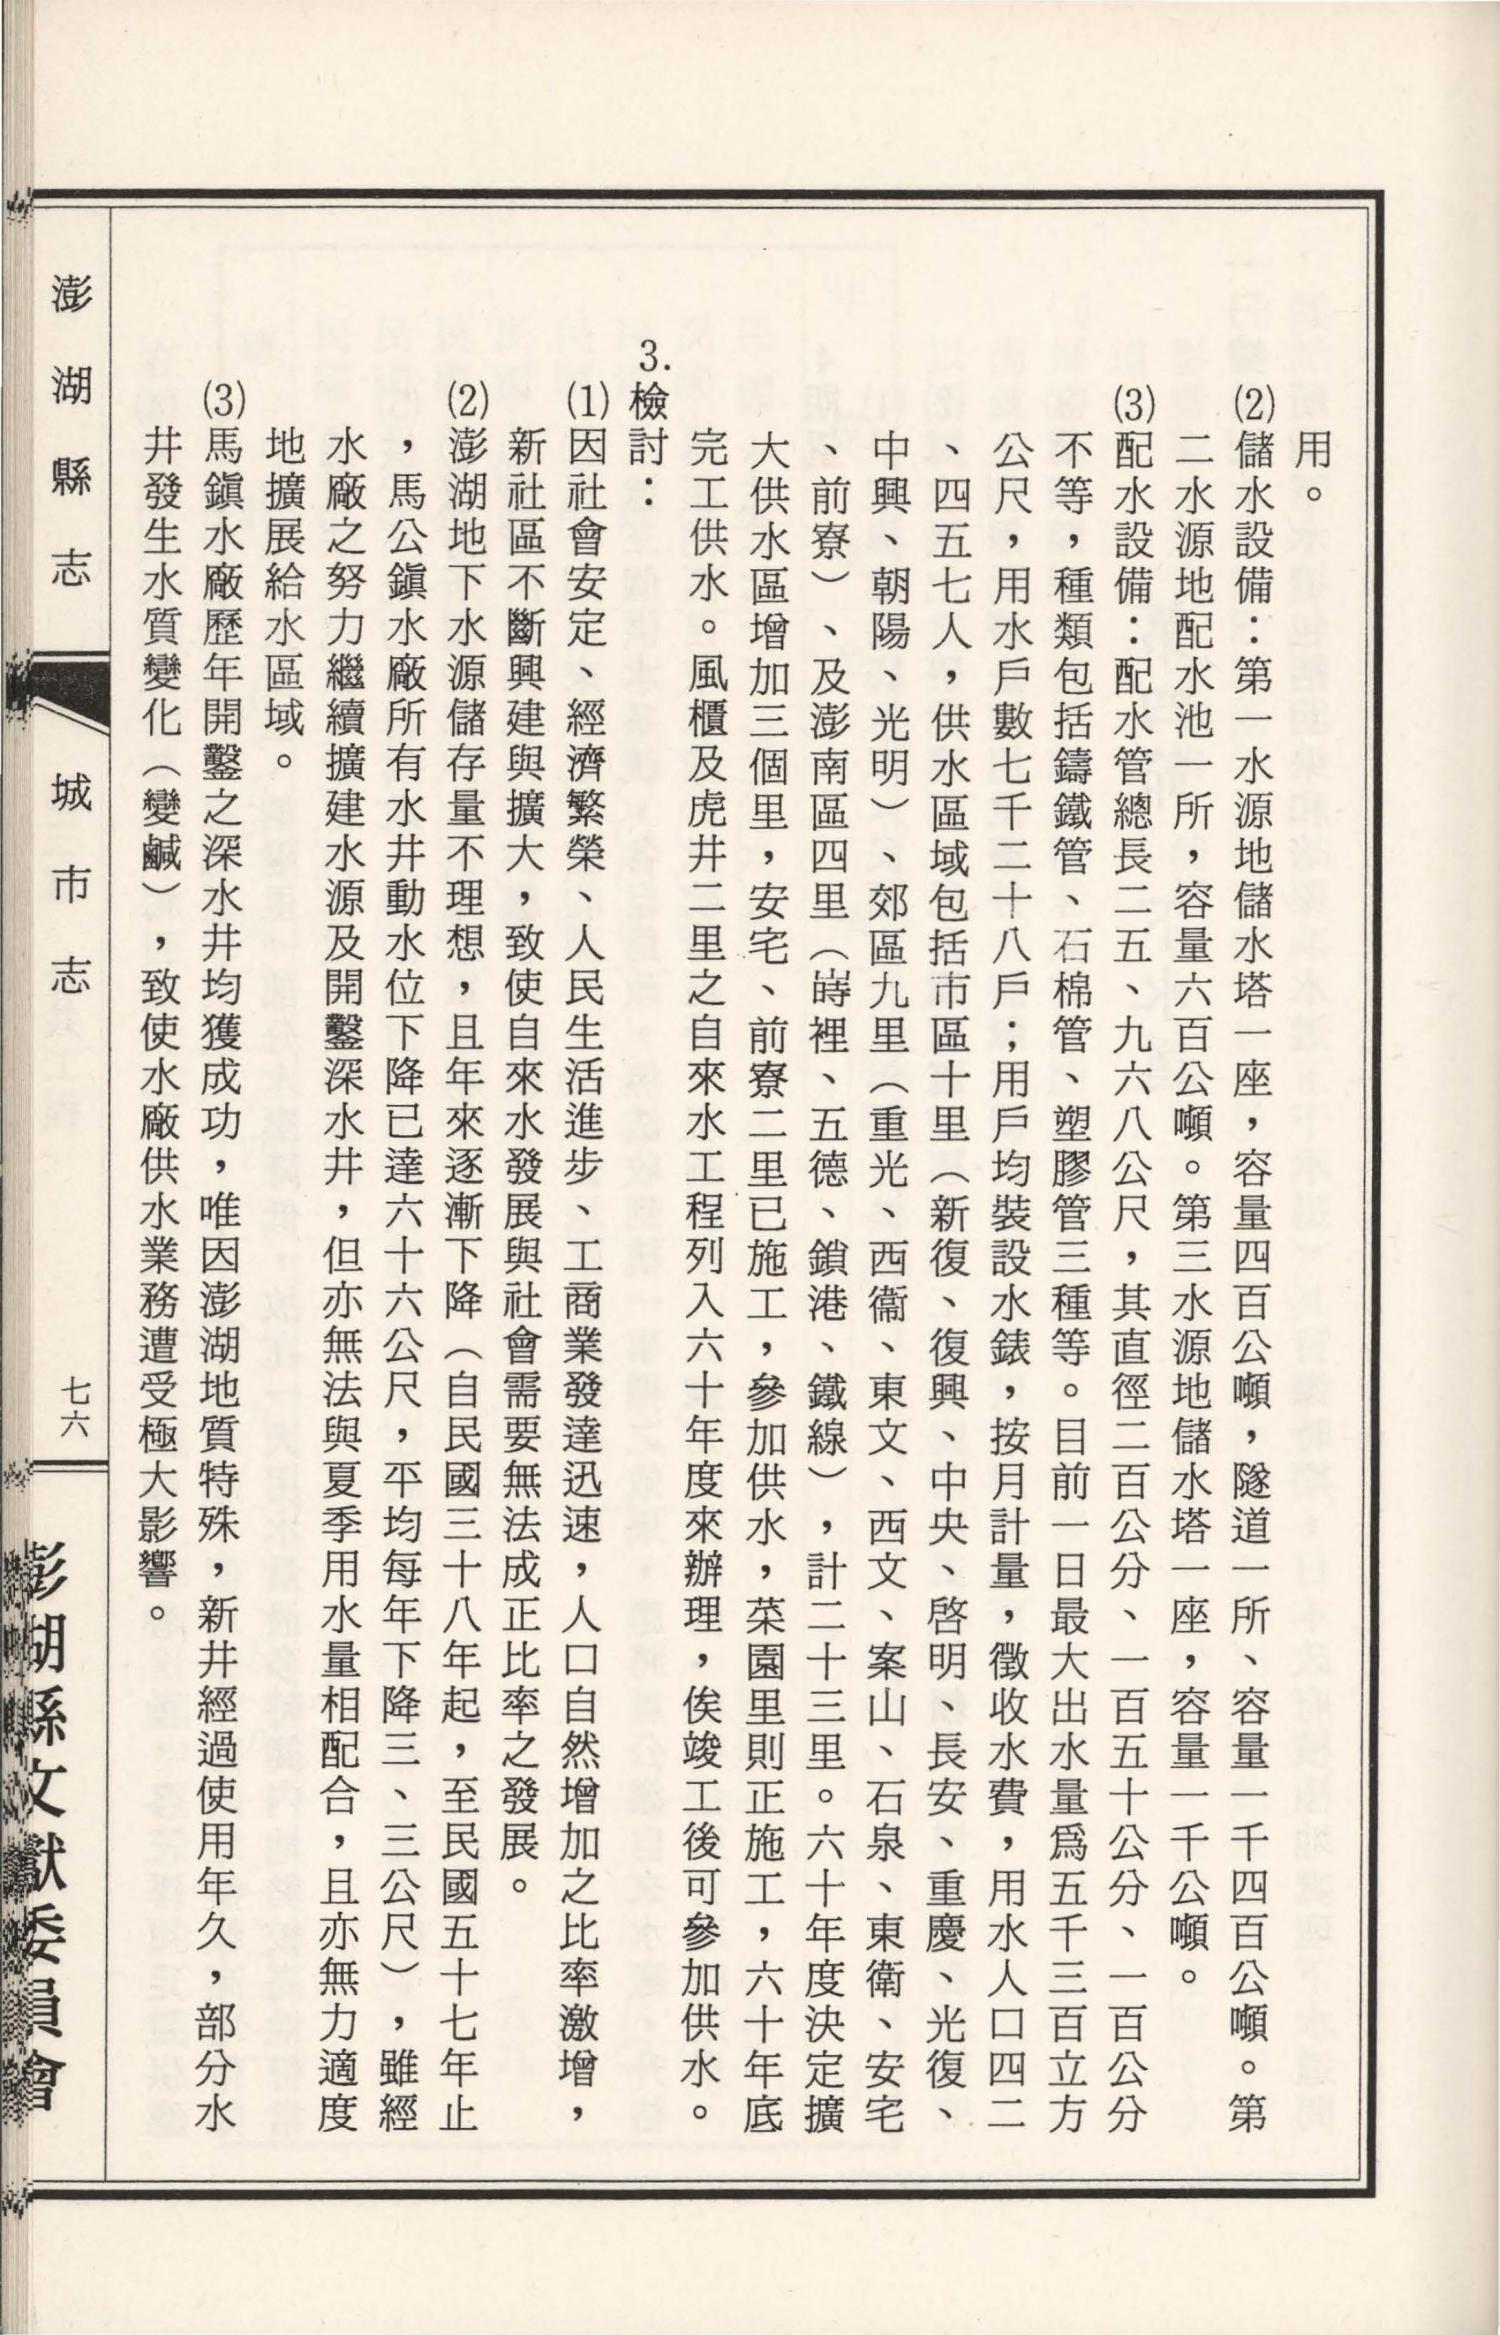 用。
(2)儲水設備：第一水源地儲水塔一座，容量四百公噸，隧道一所、容量一千四百公噸。第
二水源地配水池一所，容量六百公噸。第三水源地儲水塔一座，容量一千公噸。
(3)配水設備：配水管總長二五、九六八公尺，其直徑二百公分、一百五十公分、一百公分
不等，種類包括鑄鐵管、石棉管、塑膠管三種等。目前一日最大出水量為五千三百立方
公尺，用水戶數七千二十八戶；用戶均裝設水錶，按月計量，徵收水費，用水人口四二
、四五七人，供水區域包括市區十里（新復、復興、中央、啓明、長安、重慶、光復、
中興、朝陽、光明）、郊區九里（重光、西衞、東文、西文、案山、石泉、東衛、安宅
、前寮）、及澎南區四里（嵵裡、五德、鎖港、鐵線），計二十三里。六十年度決定擴
大供水區增加三個里，安宅、前寮二里已施工，參加供水，菜園里則正施工，六十年底
完工供水。風櫃及虎井二里之自來水工程列入六十年度來辦理，俟竣工後可參加供水。
3.檢討：
(1)因社會安定、經濟繁榮、人民生活進步、工商業發達迅速，人口自然增加之比率激增，
新社區不斷興建與擴大，致使自來水發展與社會需要無法成正比率之發展。
(2)澎湖地下水源儲存量不理想，且年來逐漸下降（自民國三十八年起，至民國五十七年止
，馬公鎭水廠所有水井動水位下降已達六十六公尺，平均每年下降三、三公尺），雖經
水廠之努力繼續擴建水源及開鑿深水井，但亦無法與夏季用水量相配合，且亦無力適度
地擴展給水區域。
(3)馬鎭水廠歷年開鑿之深水井均獲成功，唯因澎湖地質特殊，新井經過使用年久，部分水
井發生水質變化（變鹹），致使水廠供水業務遭受極大影響。
澎湖縣志
城市志
七六
澎湖縣文獻委員會